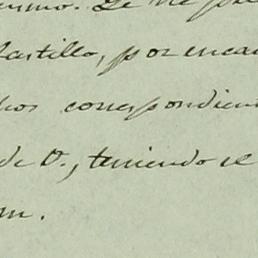 Castillo, por encar
hos correspondien
de V., teniendo el